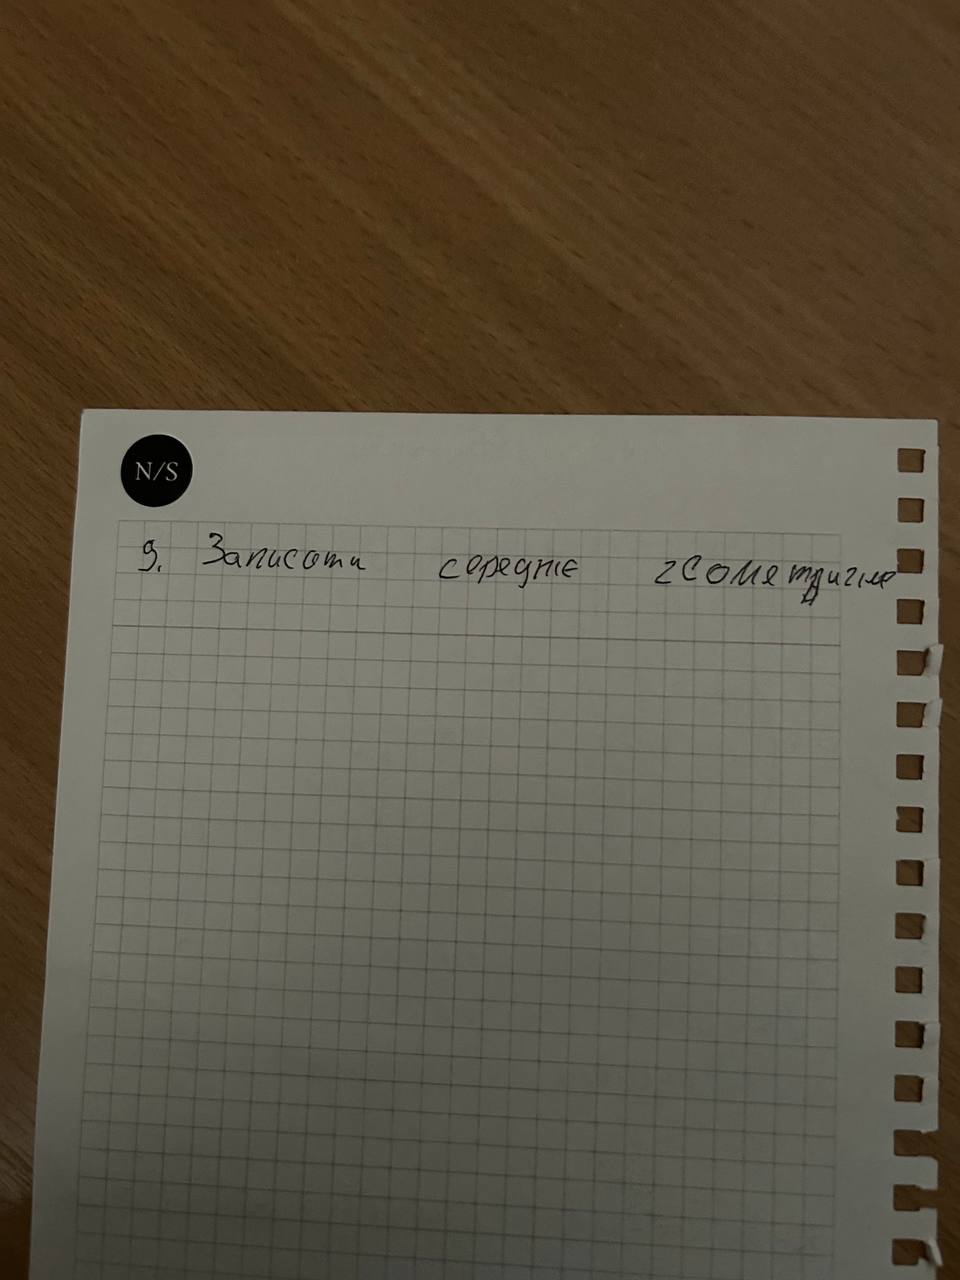 N/S
9. Записати середнє геометричне